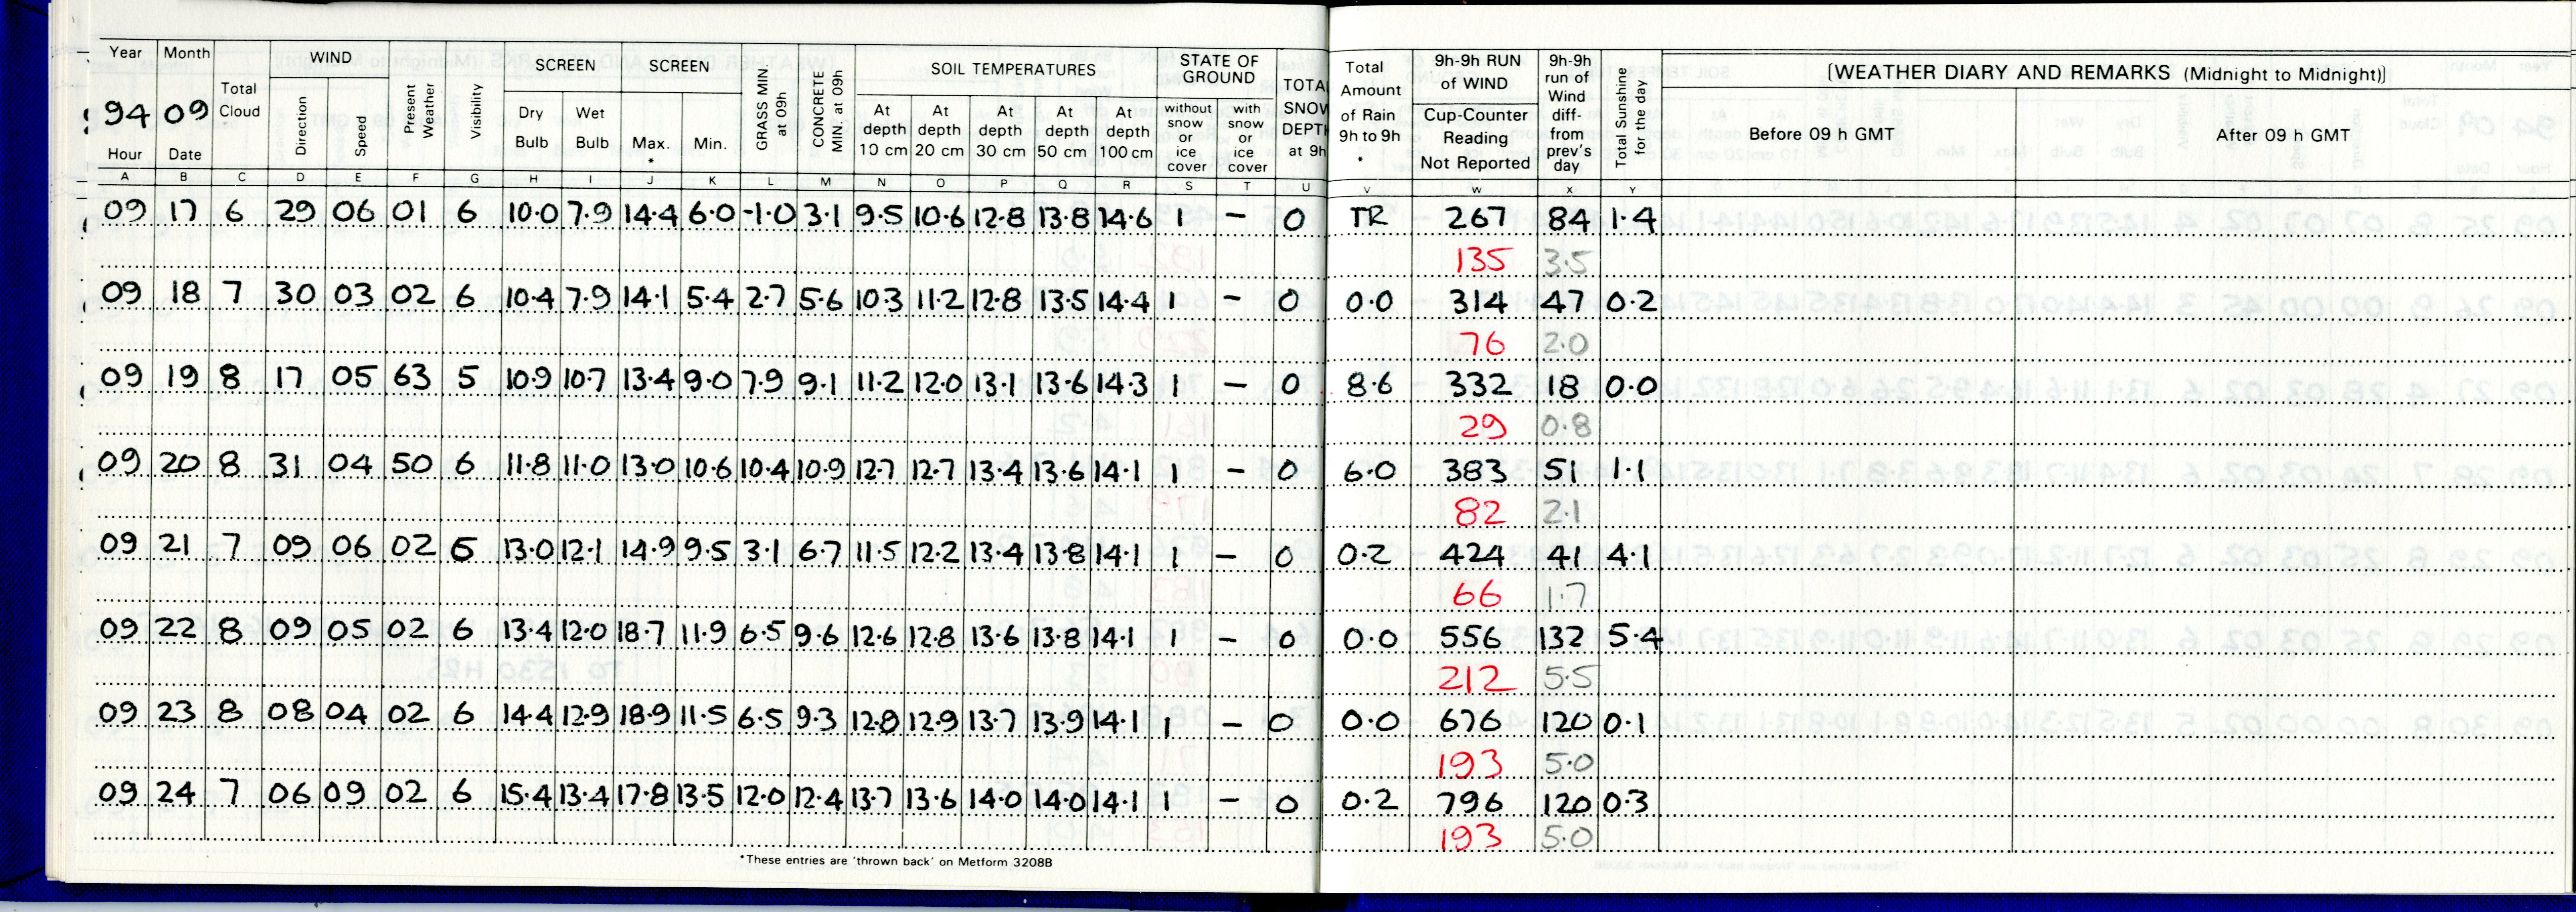 Year Month Total Cloud WIND Present Weather Visibility SCREEN SCREEN GRASS MIN at 09h CONCRETE MIN. at 09h SOIL TEMPERATURES STATE OF GROUND TOTAL SNOW DEPTH at 9h Total Amount of Rain 9h to 9h * 9h-9h RUN of WIND 9h-9h run of Wind diff- from prev's day Total Sunshine for the day [WEATHER DIARY AND REMARKS (Midnight to Midnight)]
94 09 Direction Speed Dry Bulb Wet Bulb Max. * Min. At depth 10 cm At depth 20 cm At depth 30 cm At depth 50 cm At depth 100 cm without snow or ice cover with snow or ice cover Cup-Counter Reading Not Reported Before 09 h GMT After 09 h GMT
Hour Date
A B C D E F G H I J K L M N O P Q R S T U V W X Y
09 17 6 29 06 01 6 10.0 7.9 14.4 6.0 -1.0 3.1 9.5 10.6 12.8 13.8 14.6 1 - 0 TR 267 84 1.4
135 3.5
09 18 7 30 03 02 6 10.4 7.9 14.1 5.4 2.7 5.6 10.3 11.2 12.8 13.5 14.4 1 - 0 0.0 314 47 0.2
76 2.0
09 19 8 17 05 63 5 10.9 10.7 13.4 9.0 7.9 9.1 11.2 12.0 13.1 13.6 14.3 1 - 0 8.6 332 18 0.0
29 0.8
09 20 8 31 04 50 6 11.8 11.0 13.0 10.6 10.4 10.9 12.7 12.7 13.4 13.6 14.1 1 - 0 6.0 383 51 1.1
82 2.1
09 21 7 09 06 02 6 13.0 12.1 14.9 9.5 3.1 6.7 11.5 12.2 13.4 13.8 14.1 1 - 0 0.2 424 41 4.1
66 1.7
09 22 8 09 05 02 6 13.4 12.0 18.7 11.9 6.5 9.6 12.6 12.8 13.6 13.8 14.1 1 - 0 0.0 556 132 5.4
212 5.5
09 23 8 08 04 02 6 14.4 12.9 18.9 11.5 6.5 9.3 12.8 12.9 13.7 13.9 14.1 1 - 0 0.0 676 120 0.1
193 5.0
09 24 7 06 09 02 6 15.4 13.4 17.8 13.5 12.0 12.4 13.7 13.6 14.0 14.0 14.1 1 - 0 0.2 796 120 0.3
193 5.0
*These entries are 'thrown back' on Metform 3208B